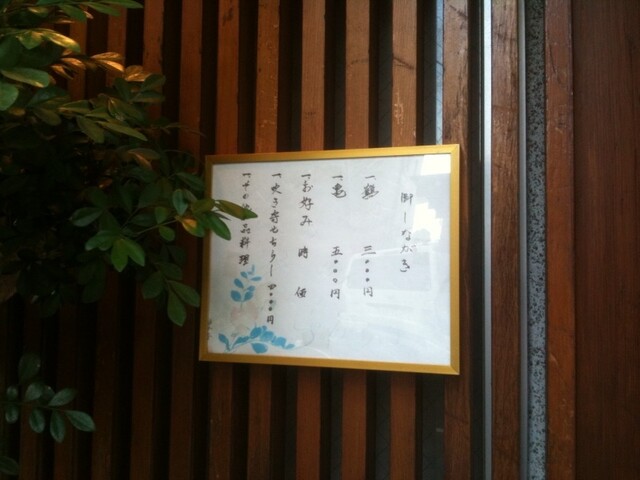 御しながき
一鶴 三〇〇〇円
一亀 五〇〇〇円
一お好み 時価
一吹き寄せちらし 四〇〇〇円
一その他一品料理